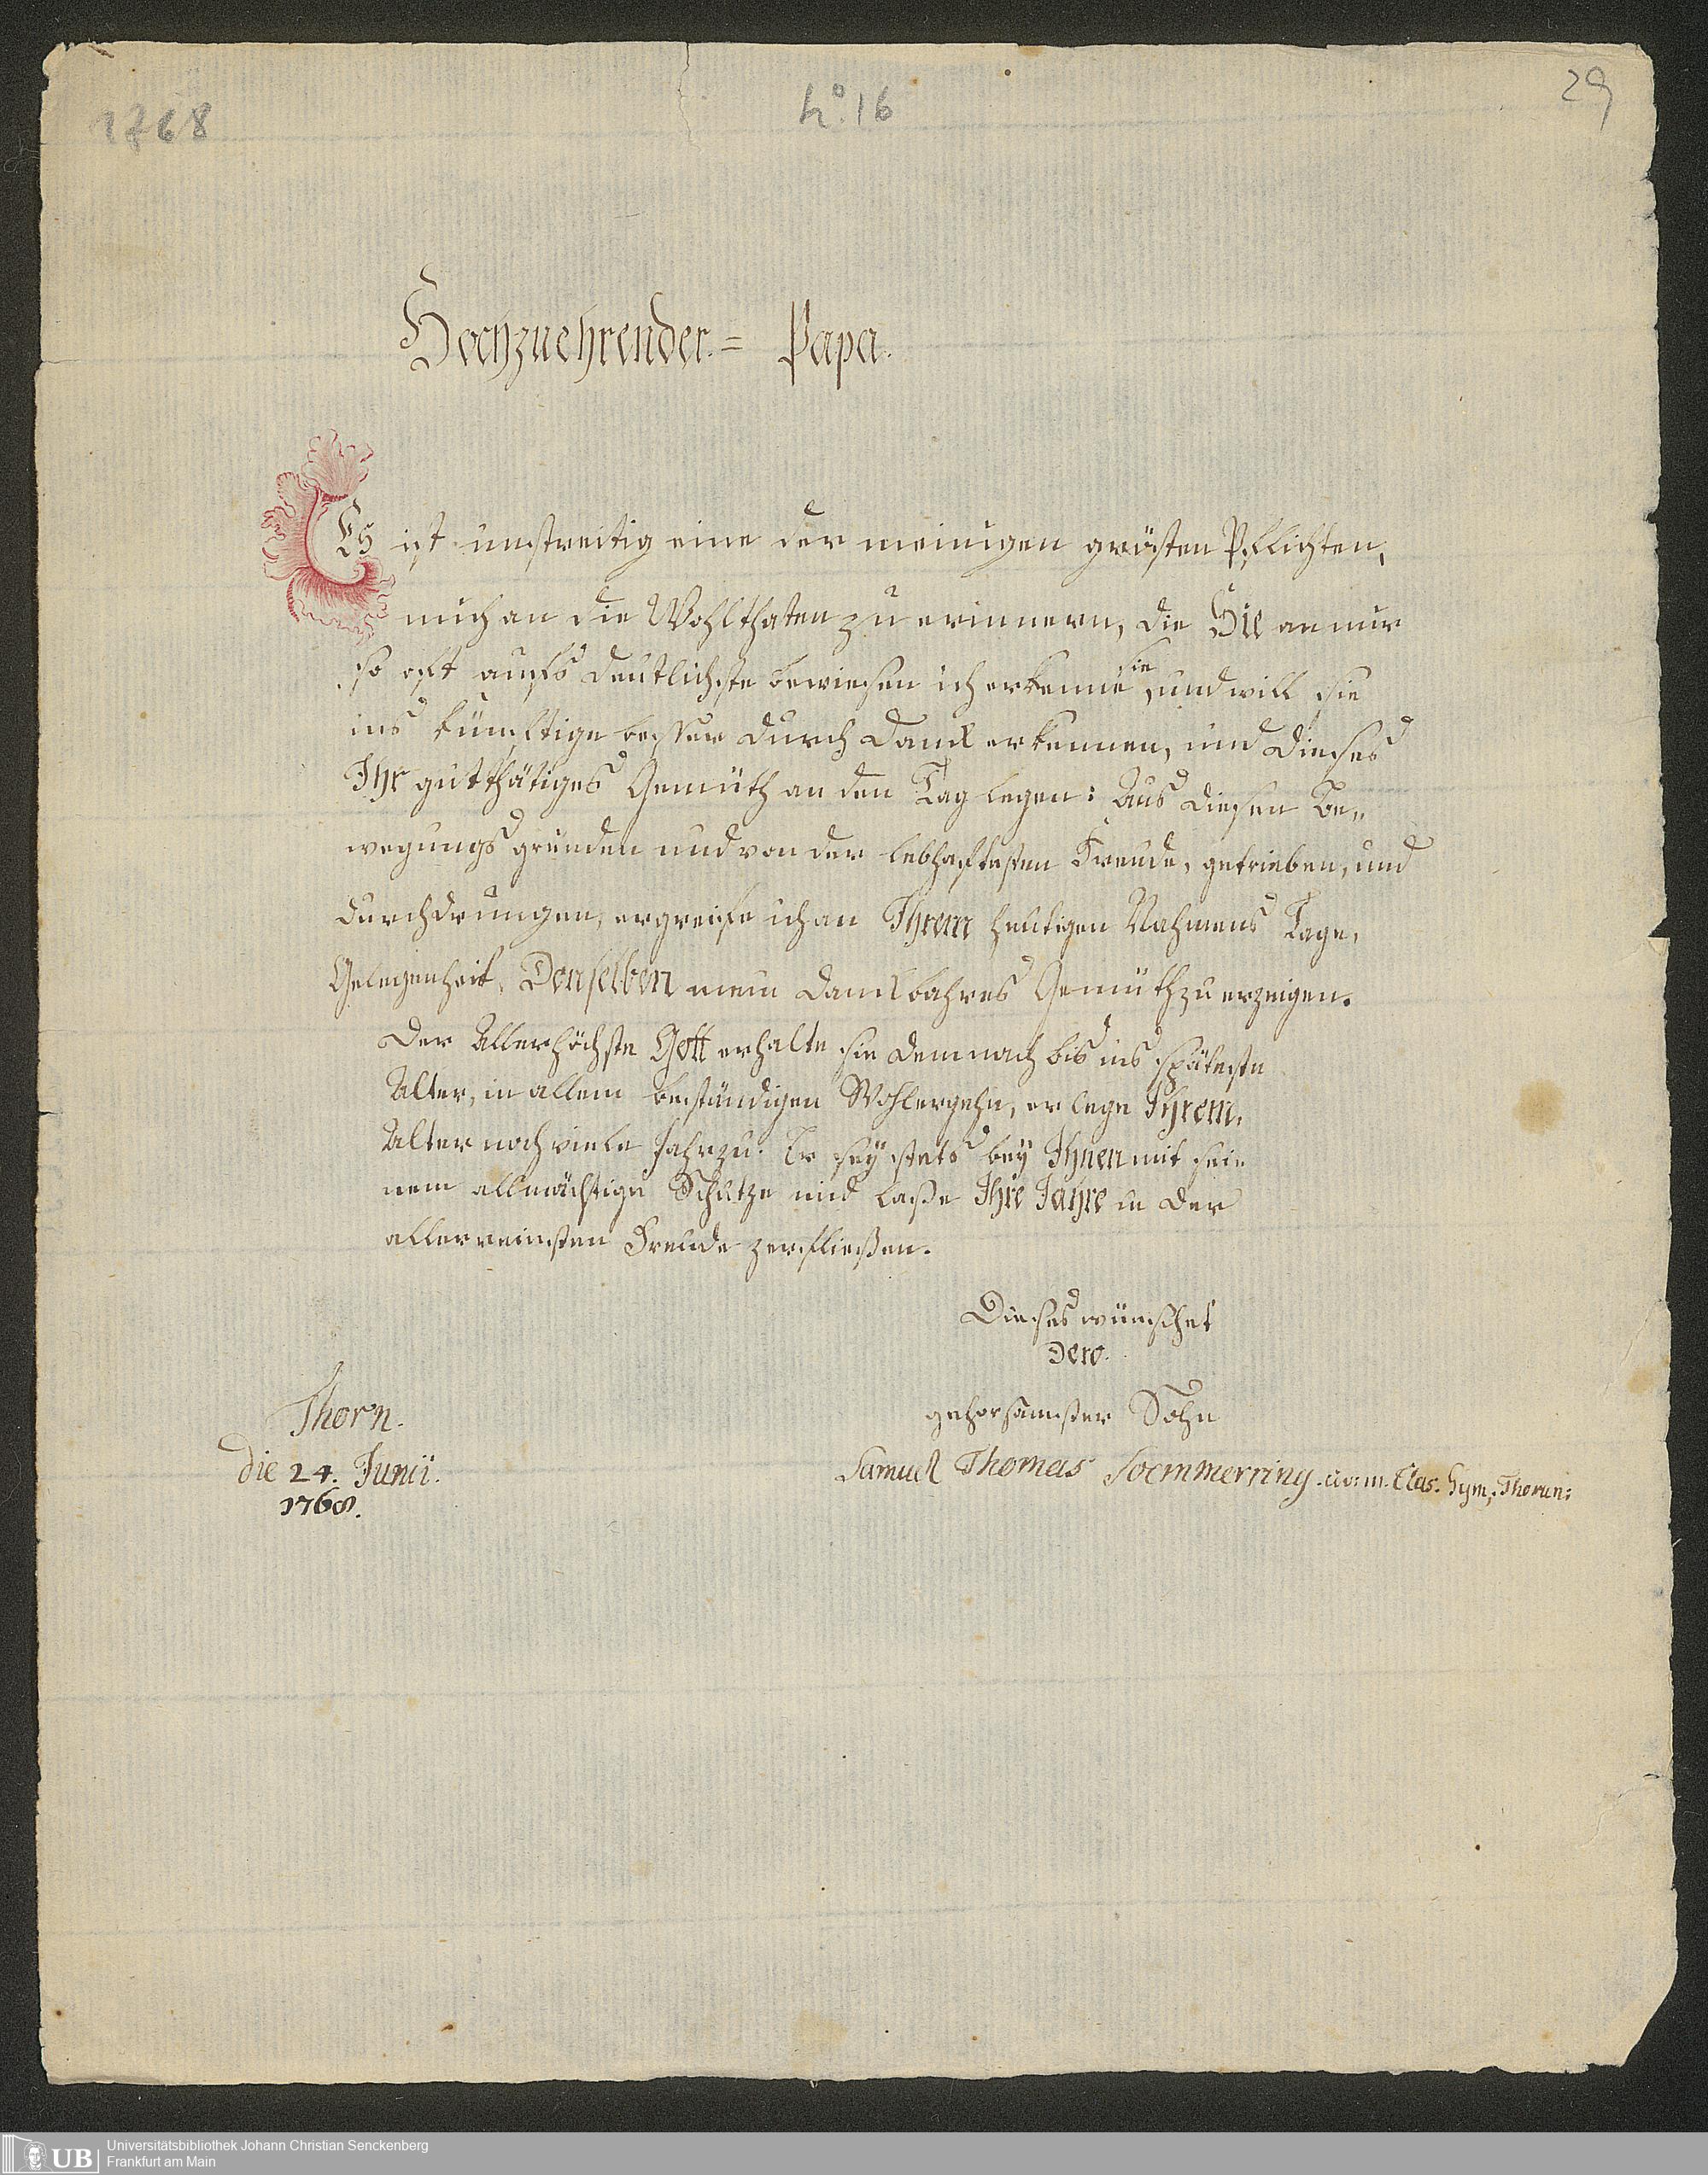 1768
No. 16
29
Hochzuehrender.= Papa.
Es ist unstreitig eine der meinigen grösten Pflichten,
mich an die Wohlthaten zu erinnern, die Sie an mir
so oft aufs deutlichste bewiesen ich erkenne sie, und will sie
ins künftige besser durch Danck erkennen, und dieses
Ihr gutthätiges Gemüth an den Tag legen: Aus diesen Be„
wegungs gründen und von der lebhaftesten Freude, getrieben, und
durchdrungen, ergreife ich an Ihrem heutigen Nahmens Tage,
Gelegenheit, Denselben mein danckbahres Gemüth zu erzeigen.
Der Allerhöchste Gott erhalte sie demnach bis ins späteste
Alter, in allem beständigen Wohlergehn, er lege Ihrem,
Alter noch viele Jahr zu. Er seÿ stets beÿ Ihnen mit sei„
nem allmächtige Schutze und laße Ihre Jahre in der
allerreinsten Freude zerfließen.
Dieses wünschet
Dero.
gehorsamster Sohn
Samuel Thomas Soemmerring. Clas. Gym, Thorun:
Thorn.
die 24. Junii.
1768.
UB
Universitätsbibliothek Johann Christian Senckenberg
Frankfurt am Main